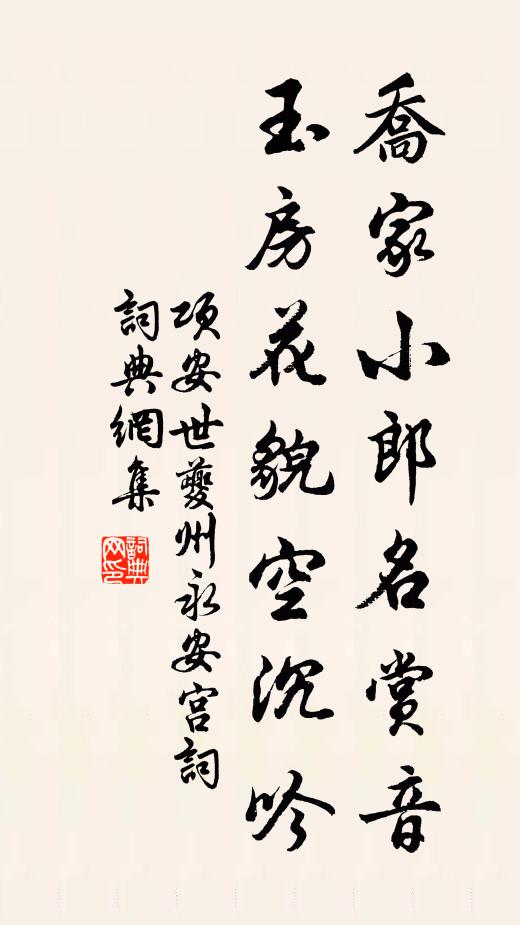 喬家小郎名賞音
玉房花貌空沉吟
項安世夔州永安宮詞
詞典網集
詞典網印